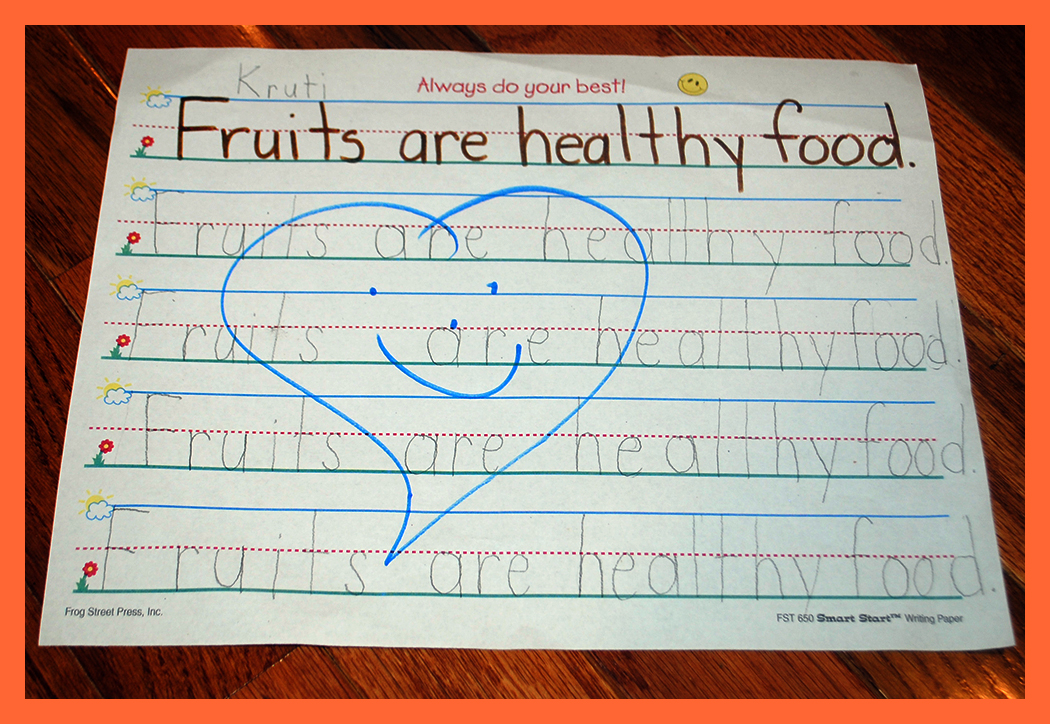 Kruti
Always do your best!
Fruits are healthy food.
Fruits are healthy food.
Fruits are healthy food.
Fruits are healthy food.
Fruits are healthy food.
Frog Street Press, Inc.
FST 650 Smart Start™ Writing Paper